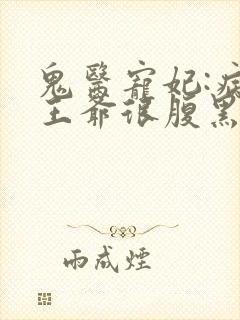 鬼醫寵妃:病
王爺很腹黑
雨成煙